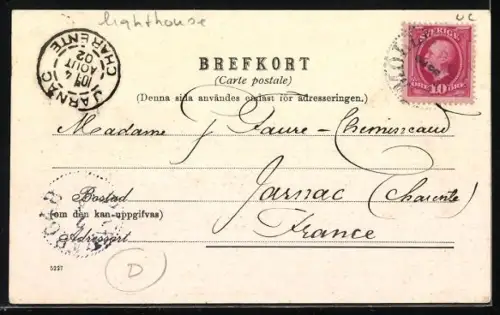 lighthouse
UC
JARNAC
10H 4
AOUT
02
CHARENTE
BREFKORT
(Carte postale)
(Denna sida användes endast för adresseringen.)
SVERIGE
10 ÖRE
Madame J Faure-Chemineaud
Jarnac (Charente)
France
Bostad
(om den kan uppgifvas)
Adressort
5227
D